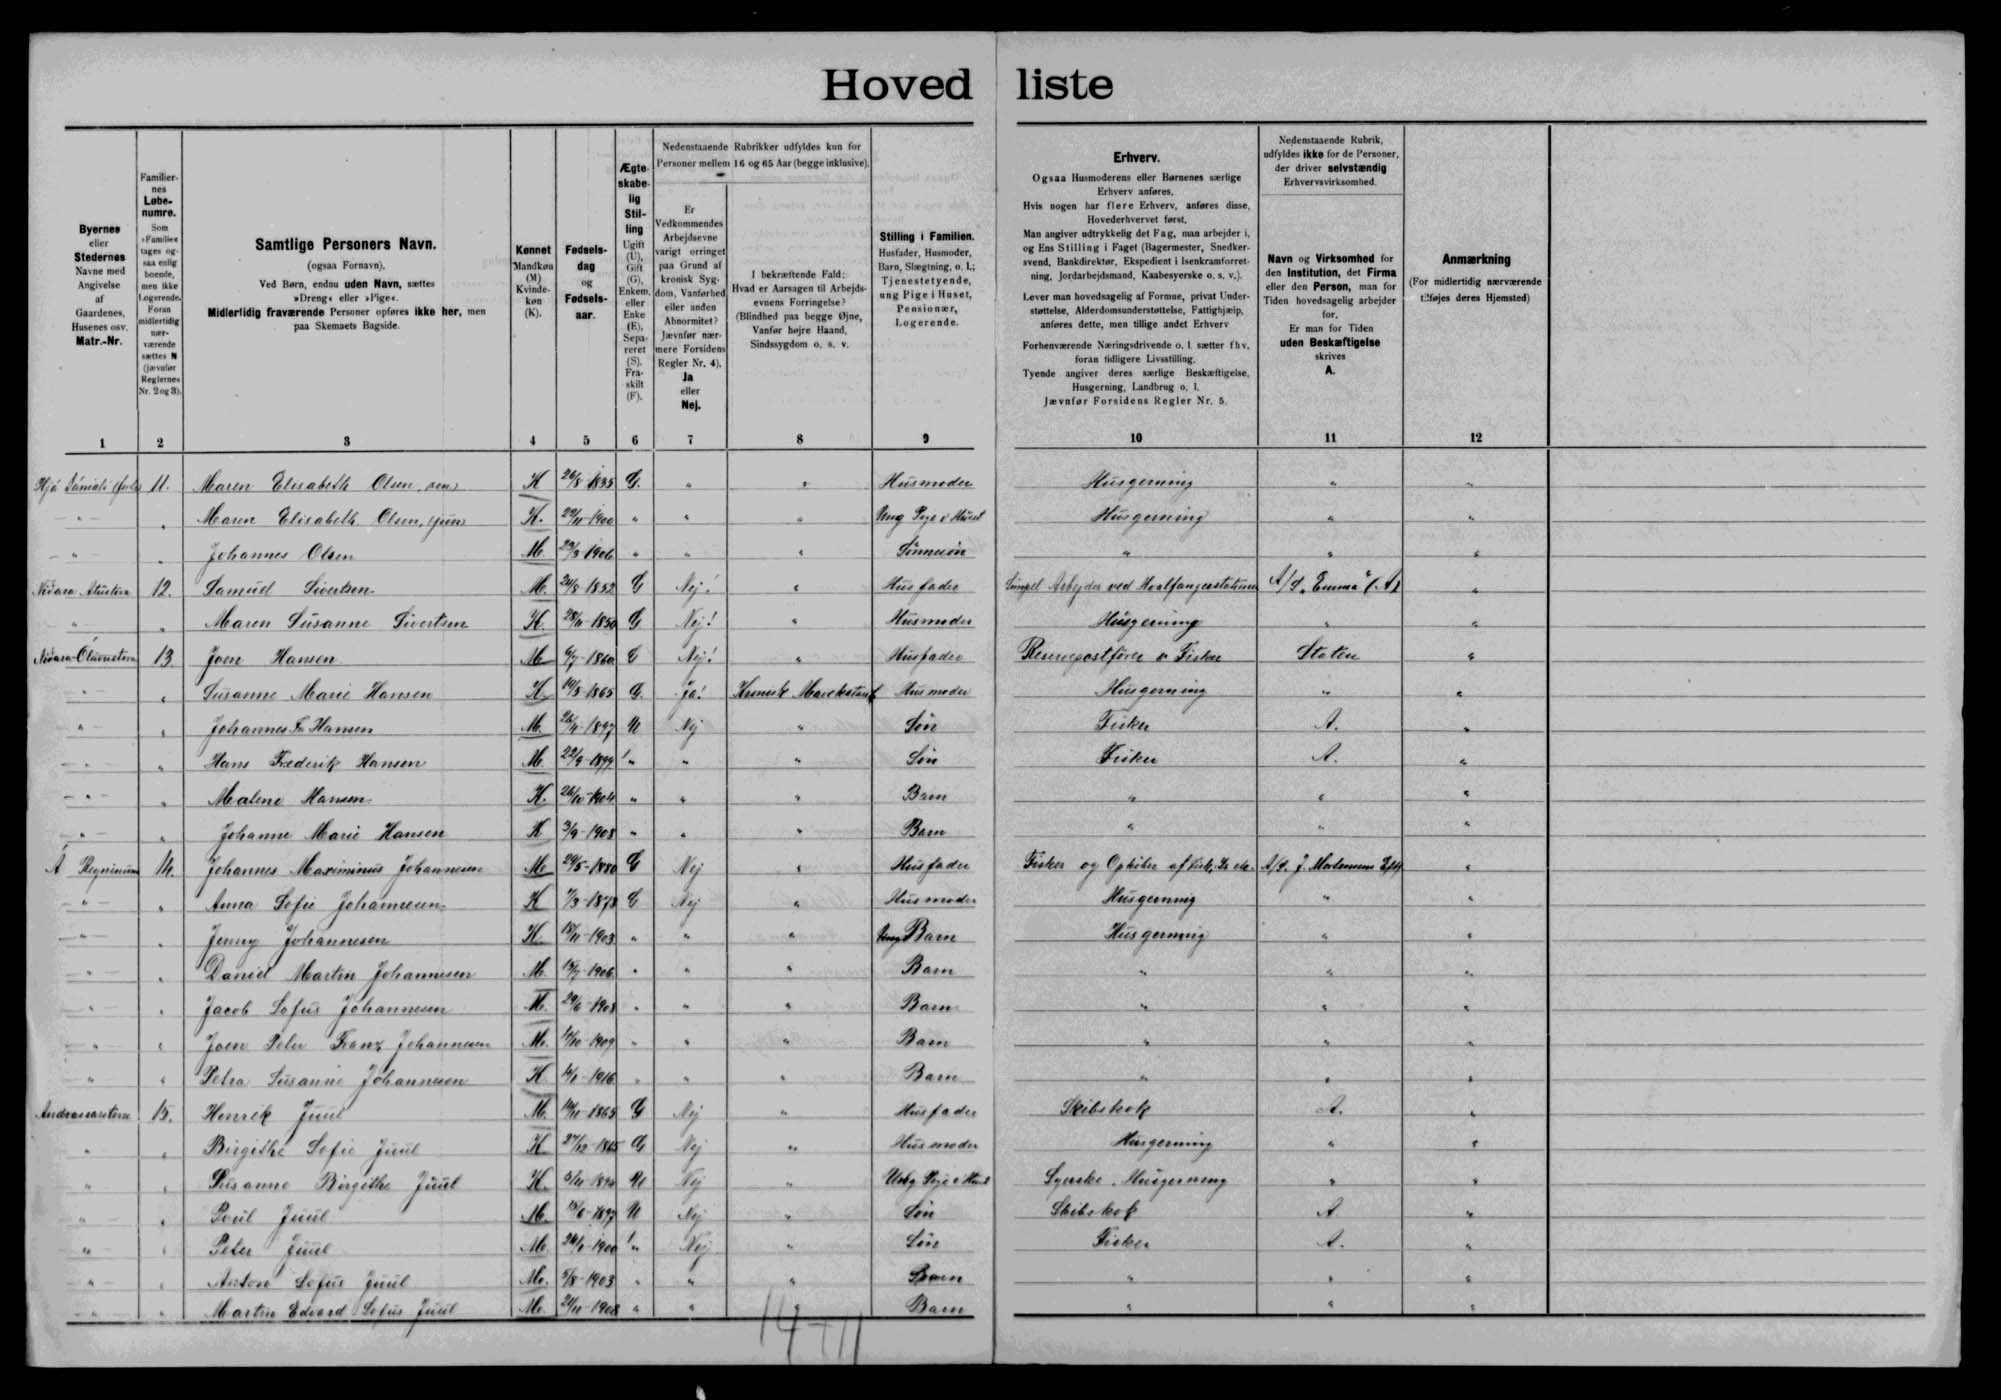 Hovedliste
Byernes eller Stedernes Navne med Angivelse af Gaardenes, Husenes osv. Matr.-Nr.
Familiernes Løbenumre. Som »Familie« tages ogsaa enlig boende, men ikke Logerende. Foran midlertidig nærværende sættes N (jævnfør Reglernes Nr. 2 og 3).
Samtlige Personers Navn. (ogsaa Fornavn). Ved Børn, endnu uden Navn, sættes »Dreng« eller »Pige«. Midlertidig fraværende Personer opføres ikke her, men paa Skemaets Bagside.
Kønnet Mandkøn (M) Kvindekøn (K).
Fødselsdag og Fødselsaar.
Ægteskabelig Stilling Ugift (U), Gift (G), Enkem. eller Enke (E), Separeret (S). Fraskilt (F).
Nedenstaaende Rubrikker udfyldes kun for Personer mellem 16 og 65 Aar (begge inklusive).
Er Vedkommendes Arbejdsevne varigt forringet paa Grund af kronisk Sygdom, Vanførhed eller anden Abnormitet? Jævnfør nærmere Forsidens Regler Nr. 4). Ja eller Nej.
I bekræftende Fald: Hvad er Aarsagen til Arbejdsevnens Forringelse? (Blindhed paa begge Øjne, Vanfør højre Haand, Sindssygdom o. s. v.
Stilling i Familien. Husfader, Husmoder, Barn, Slægtning, o. l.; Tjenestetyende, ung Pige i Huset, Pensionær, Logerende.
Erhverv. Ogsaa Husmoderens eller Børnenes særlige Erhverv anføres. Hvis nogen har flere Erhverv, anføres disse, Hovederhvervet først. Man angiver udtrykkelig det Fag, man arbejder i, og Ens Stilling i Faget (Bagermester, Snedkersvend, Bankdirektør, Ekspedient i Isenkramforretning, Jordarbejdsmand, Kaabesyerske o. s. v.). Lever man hovedsagelig af Formue, privat Understøttelse, Alderdomsunderstøttelse, Fattighjælp, anføres dette, men tillige andet Erhverv Forhenværende Næringsdrivende o. l. sætter fhv. foran tidligere Livsstilling. Tyende angiver deres særlige Beskæftigelse, Husgerning, Landbrug o. l. Jævnfør Forsidens Regler Nr. 5.
Nedenstaaende Rubrik, udfyldes ikke for de Personer, der driver selvstændig Erhvervsvirksomhed.
Navn og Virksomhed for den Institution, det Firma eller den Person, man for Tiden hovedsagelig arbejder for. Er man for Tiden uden Beskæftigelse skrives A.
Anmærkning (For midlertidig nærværende tilføjes deres Hjemsted)
1 2 3 4 5 6 7 8 9 10 11 12
11. Maren Elisabeth Olsen, sen K 26/8 1835 G. " " Husmoder Husgerning " "
" " Maren Elisabeth Olsen, jun K. 29/11 1900 " " " Ung Pige i Huset Husgerning " "
" " Johannes Olsen M. 1906 " " " Sønnesøn " " "
12. Samuel Sivertsen M. 1852 G Nej! " Husfader Simpel Arbejder ved Hvalfangerstationen A/S. "Emma" (A) "
" " Maren Susanne Sivertsen K. 28/11 1850 G Nej! " Husmoder Husgerning " "
13 Joen Hansen M 6/7 1860 G Nej! " Husfader Reservepostfører & Fisker Staten "
" " Susanne Marie Hansen K. 19/5 1865 G. Ja! Kronisk Husmoder Husgerning " "
" " Johannes Fr. Hansen M. 1897 U Nej " Søn Fisker A. "
" " Hans Frederik Hansen M. 22/9 1899 " " " Søn Fisker A. "
" " Malene Hansen K. 26/10 1904 " " " Barn " " "
" " Johanne Marie Hansen K 3/9 1908 " " " Barn " " "
14. Johannes Maximinus Johannesen M. 29/5 1880 G Nej " Husfader Fisker og Opkøber af Fisk, A/S. J. Mortensens Eftf "
" " Anna Sofie Johannesen K 7/3 1878 G Nej " Husmoder Husgerning " "
" " Jenny Johannesen K. 18/11 1903 " " " Ung Barn Husgerning " "
" " Daniel Martin Johannesen M. 1906 " " " Barn " " "
" " Jacob Sofus Johannesen M. 29/6 1908 " " " Barn " " "
" " Joen Peter Franz Johannesen M. 11/10 1909 " " " Barn " " "
" " Petra Susanne Johannesen K 1916 " " " Barn " " "
15. Henrik Juul M. 14/11 1865 G Nej " Husfader Skibskok A. "
" " Birgithe Sofie Juul K 27/12 1865 G Nej " Husmoder Husgerning " "
" " Susanne Birgithe Juul K. U Nej " Ung Pige i Huset Syerske. Husgerning " "
" " Poul Juul M. 15/6 1897 U Nej " Søn Skibskok A "
" " Peter Juul M. 1900 " Nej " Søn Fisker A. "
" " Anton Sofus Juul M. 5/8 1903 " " " Barn " " "
" " Martin Edvard Sofus Juul M. 21/11 1908 " " " Barn " " "
14+11